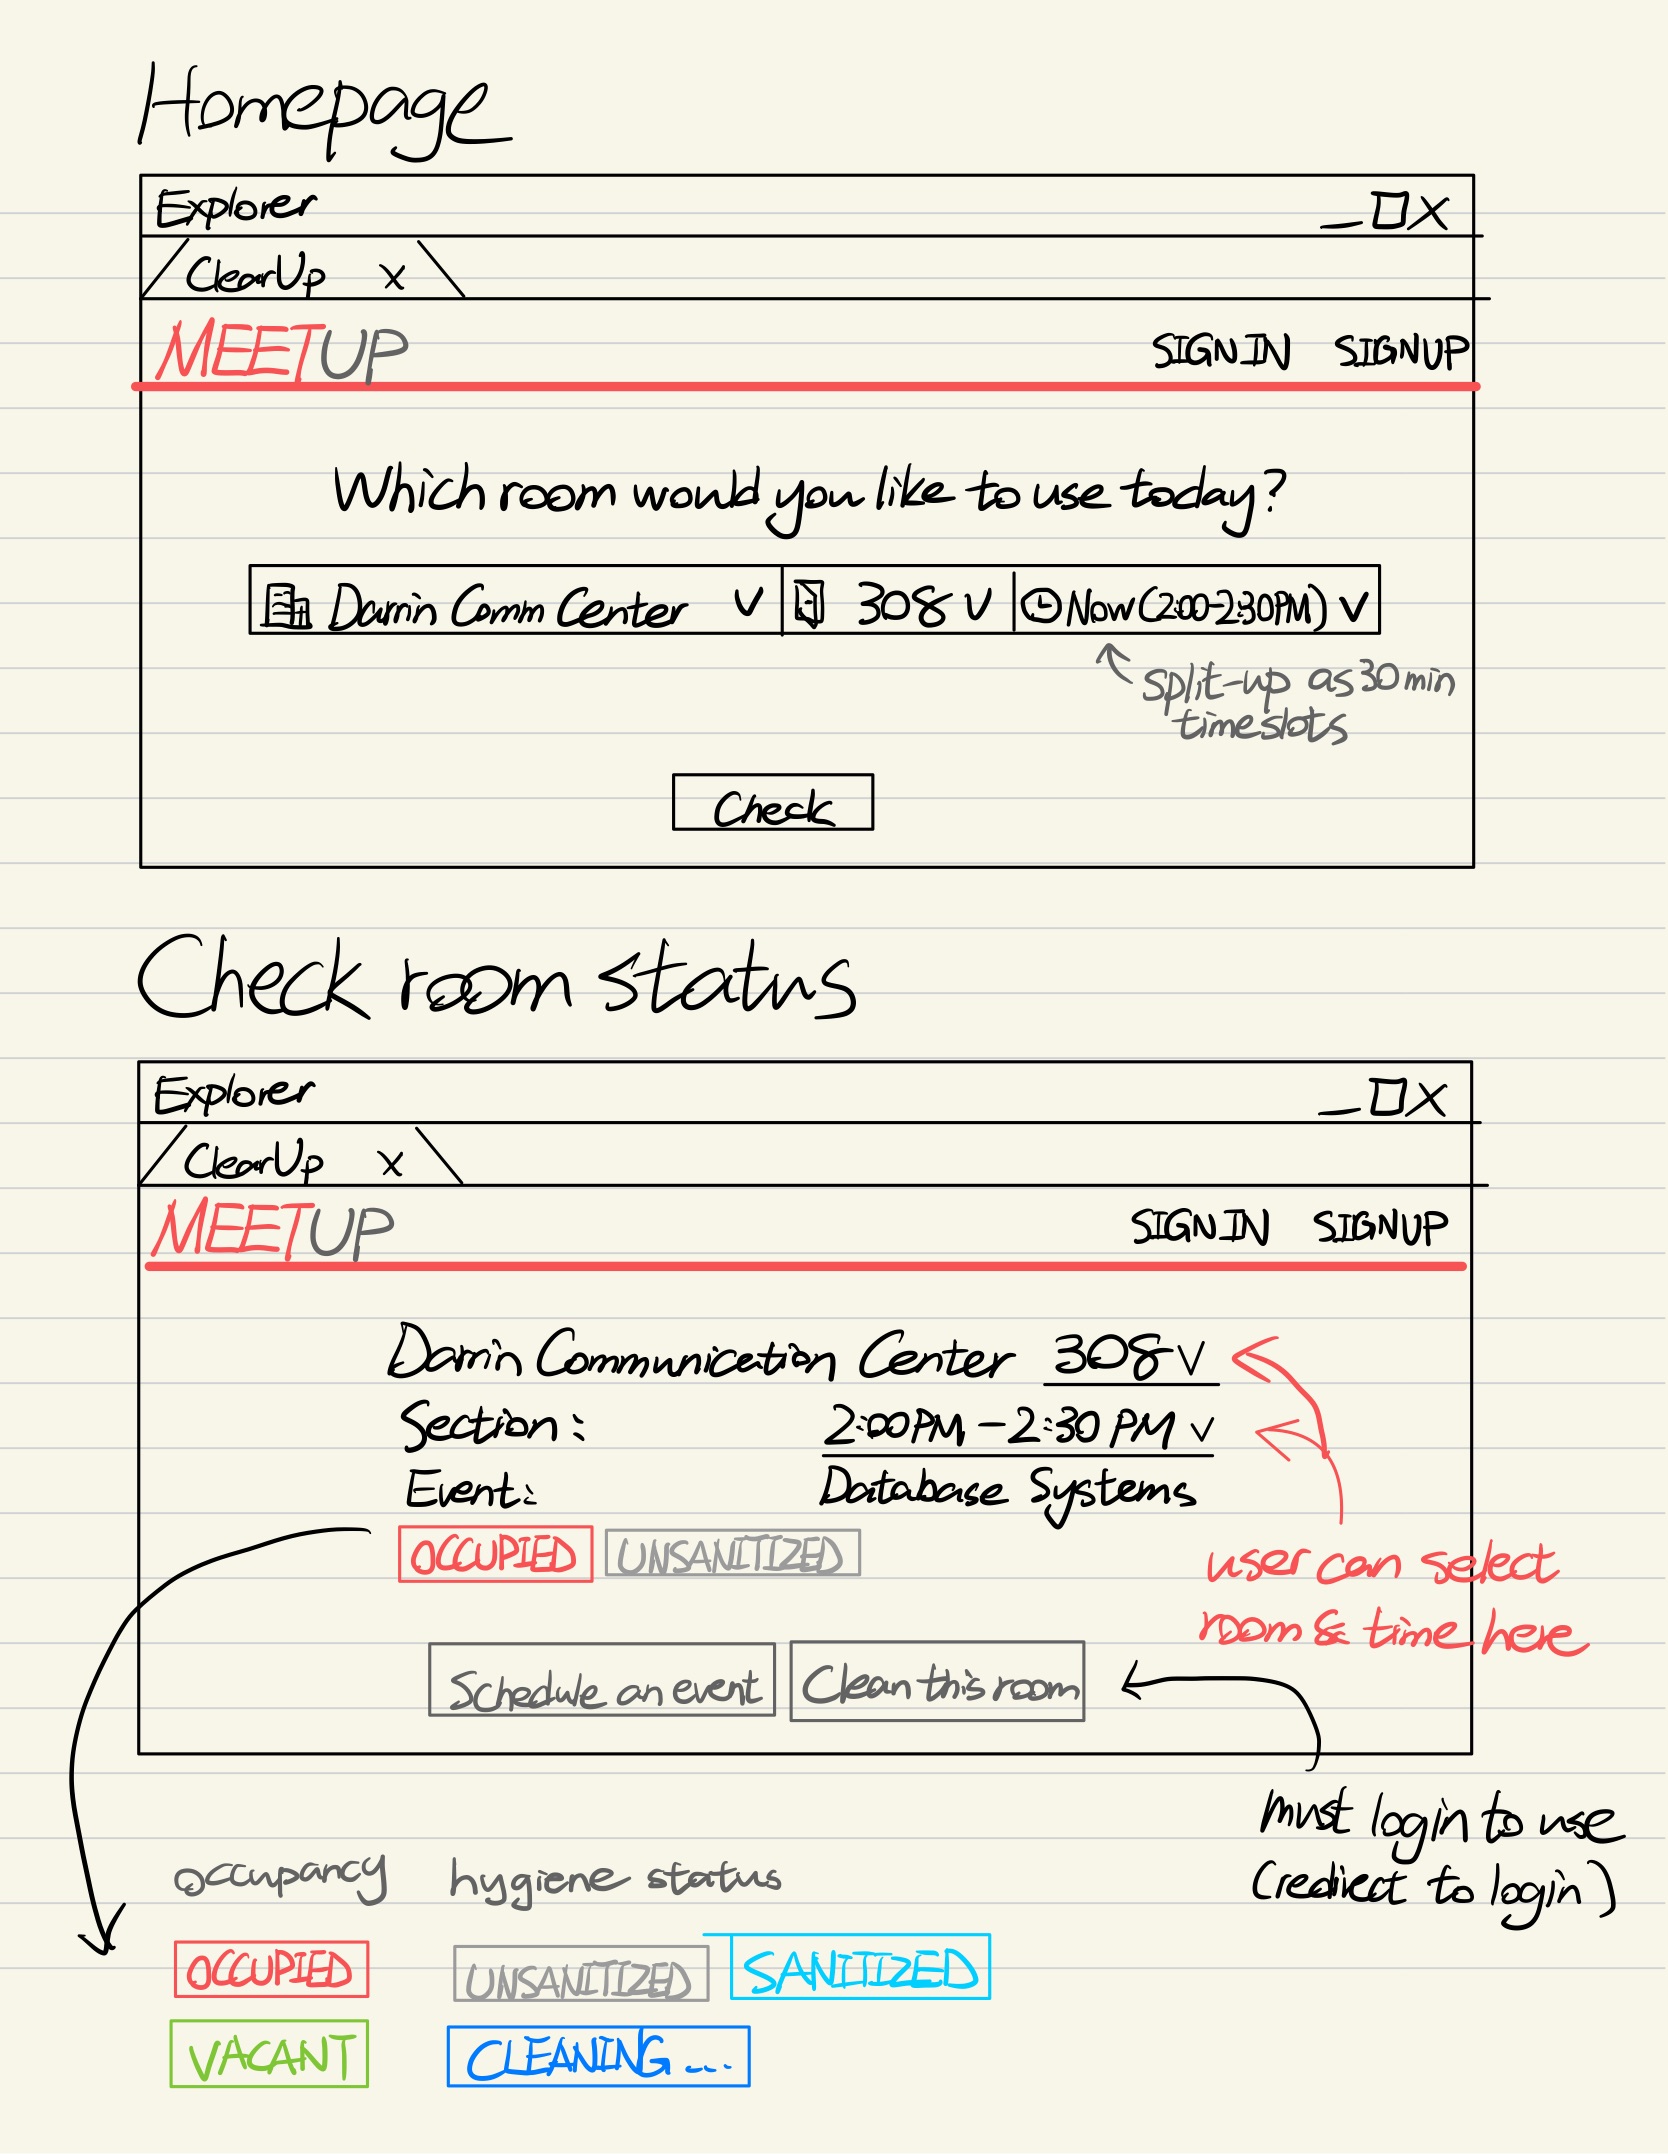 Homepage
Explorer
ClearUp x
MEETUP SIGNIN SIGNUP
Which room would you like to use today?
Darrin Comm Center 308 Now (2:00-2:30PM)
split-up as 30 min
timeslots
Check
Check room status
Explorer
ClearUp x
MEETUP SIGNIN SIGNUP
Darrin Communication Center 308
Section: 2:00PM - 2:30 PM
Event: Database Systems
OCCUPIED UNSANITIZED
user can select
room & time here
Schedule an event Clean this room
must login to use
(redirect to login)
occupancy hygiene status
OCCUPIED UNSANITIZED SANITIZED
VACANT CLEANING ...